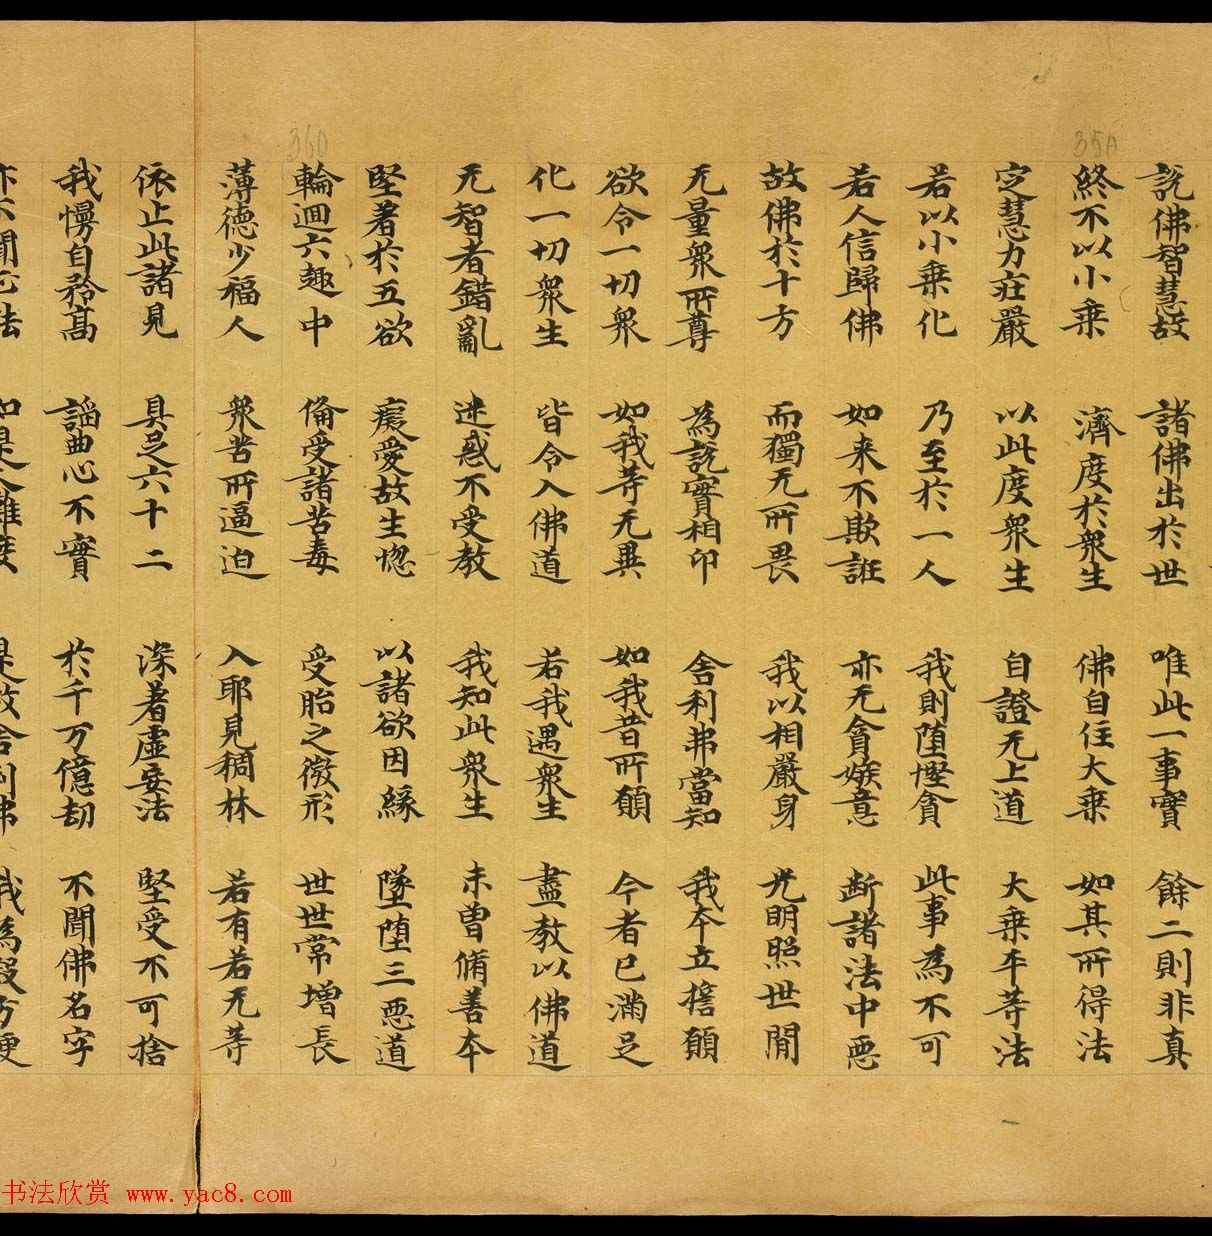 35A
360
説佛智慧故 諸佛出於世 唯此一事實 餘二則非真
終不以小乗 濟度於衆生 佛自住大乗 如其所得法
定慧力莊嚴 以此度衆生 自證无上道 大乗平等法
若以小乗化 乃至於一人 我則堕慳貪 此事為不可
若人信歸佛 如来不欺誑 亦无貪嫉意 断諸法中惡
故佛於十方 而獨无所畏 我以相嚴身 光明照世間
无量衆所尊 為説實相印 舎利弗當知 我本立擔願
欲令一切衆 如我等无異 如我昔所願 今者已滿足
化一切衆生 皆令入佛道 若我遇衆生 盡教以佛道
无智者錯亂 迷惑不受教 我知此衆生 未曽脩善本
堅著於五欲 癡愛故生惚 以諸欲因緣 墜堕三惡道
輪迴六趣中 俻受諸苦毒 受胎之微形 世世常増長
薄德少福人 衆苦所逼迫 入耶見稠林 若有若无等
依止此諸見 具足六十二 深著虚妄法 堅受不可捨
我慢自矜髙 諂曲心不實 於千万億劫 不聞佛名字
亦不聞正法 如是人難度 是故舎利弗 我為設方便
书法欣赏 www.yac8.com